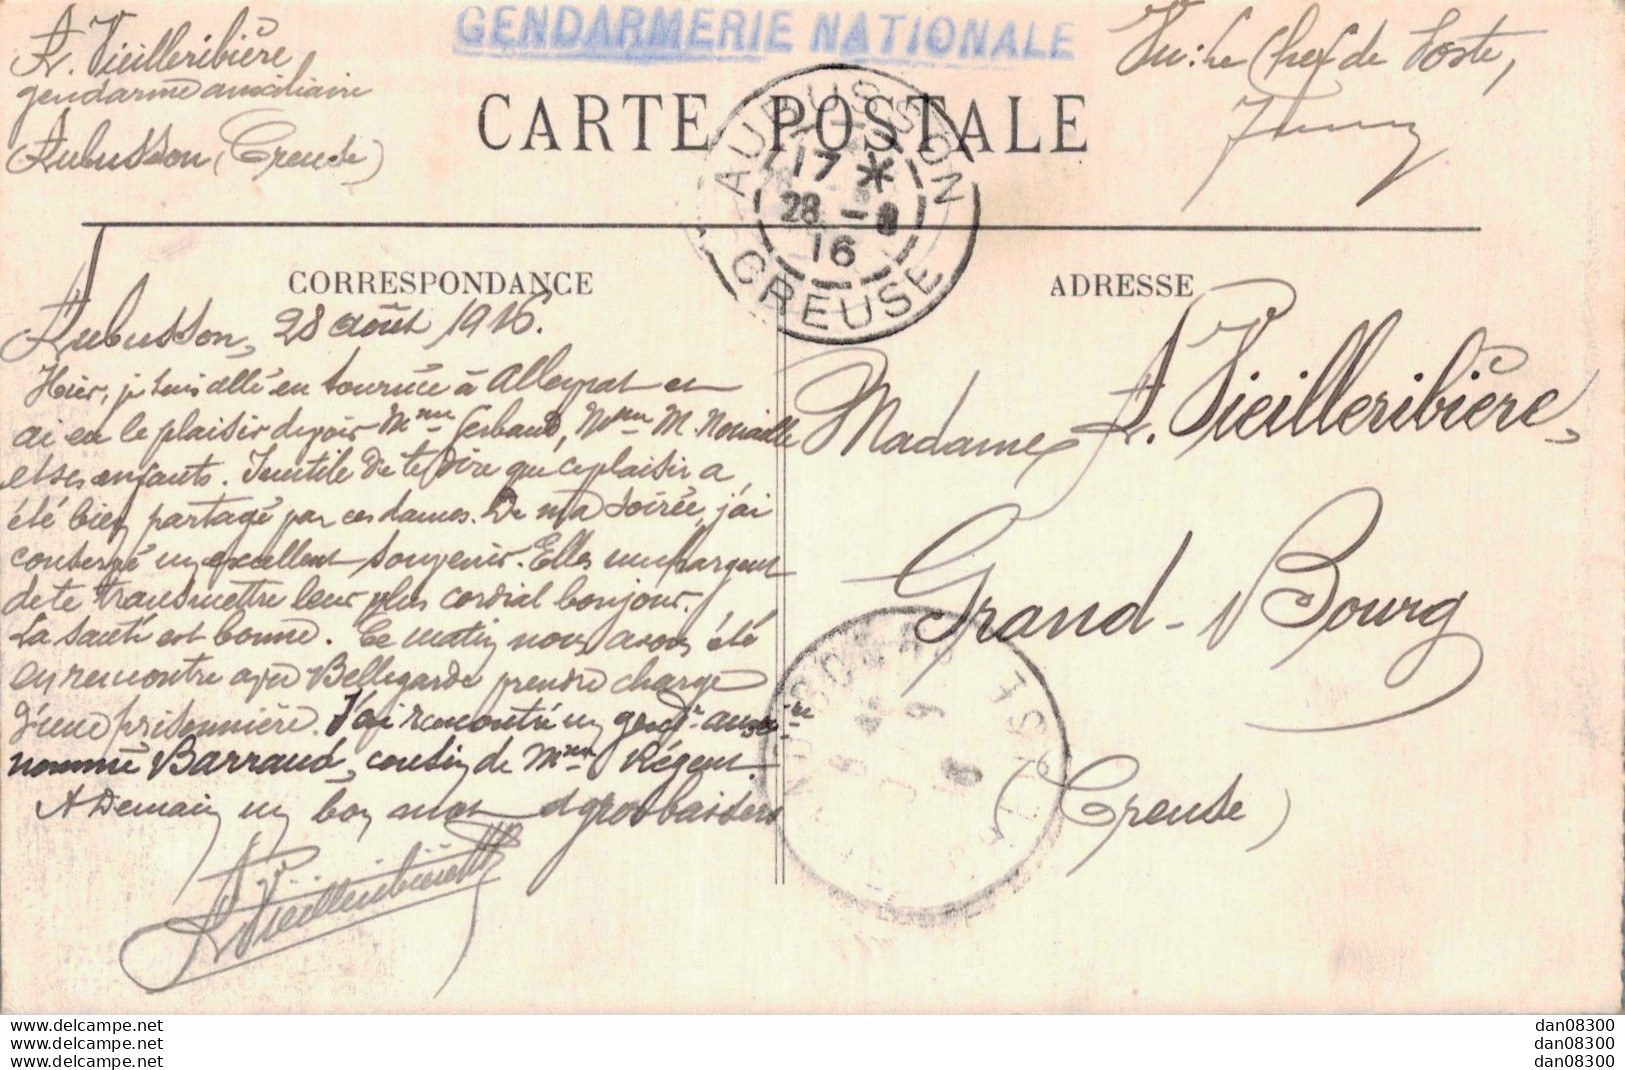 A. Vieilleribière
gendarme auxiliaire
Aubusson (Creuse)
GENDARMERIE NATIONALE
Vu: Le Chef de Poste,
CARTE POSTALE
AUBUSSON
17 *
28 - 8
16
CREUSE
CORRESPONDANCE
ADRESSE
Aubusson, 28 août 1916.
Hier, je suis allé en tournée à Alleyrat et
ai eu le plaisir de voir Mme Gerbaud, Mme M. Nouaille
et ses enfants. Inutile de te dire que ce plaisir a
été bien partagé par ces dames. De ma soirée, j'ai
conservé un excellent souvenir. Elles me chargent
de te transmettre leur plus cordial bonjour.
La santé est bonne. Ce matin nous avons été
en rencontre avec Bellegarde prendre charge
d'une prisonnière. J'ai rencontré un gend. auxre
nommé Barraud, cousin de Mme Régent.
A Demain un bon mot et gros baisers
A. Vieilleribière
Madame A. Vieilleribière,
Grand-Bourg
Creuse)
www.delcampe.net
www.delcampe.net
www.delcampe.net
dan08300
dan08300
dan08300